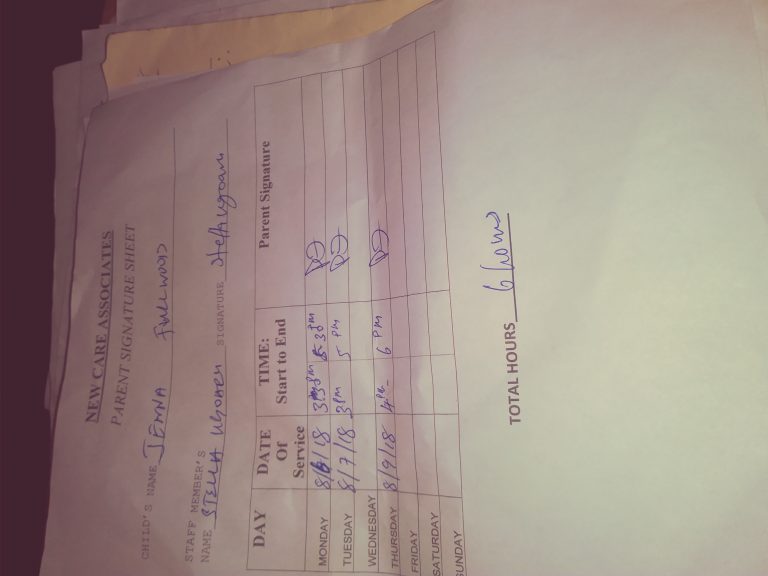 NEW CARE ASSOCIATES
PARENT SIGNATURE SHEET
CHILD'S NAME JENNA Fullwood
STAFF MEMBER'S
NAME STELLA SIGNATURE
DAY DATE Of Service TIME: Start to End Parent Signature
MONDAY 8/6/18 5:30pm
TUESDAY 8/7/18 3pm 5 pm
WEDNESDAY
THURSDAY 8/9/18 4pm 6 pm
FRIDAY
SATURDAY
SUNDAY
TOTAL HOURS 6 hours